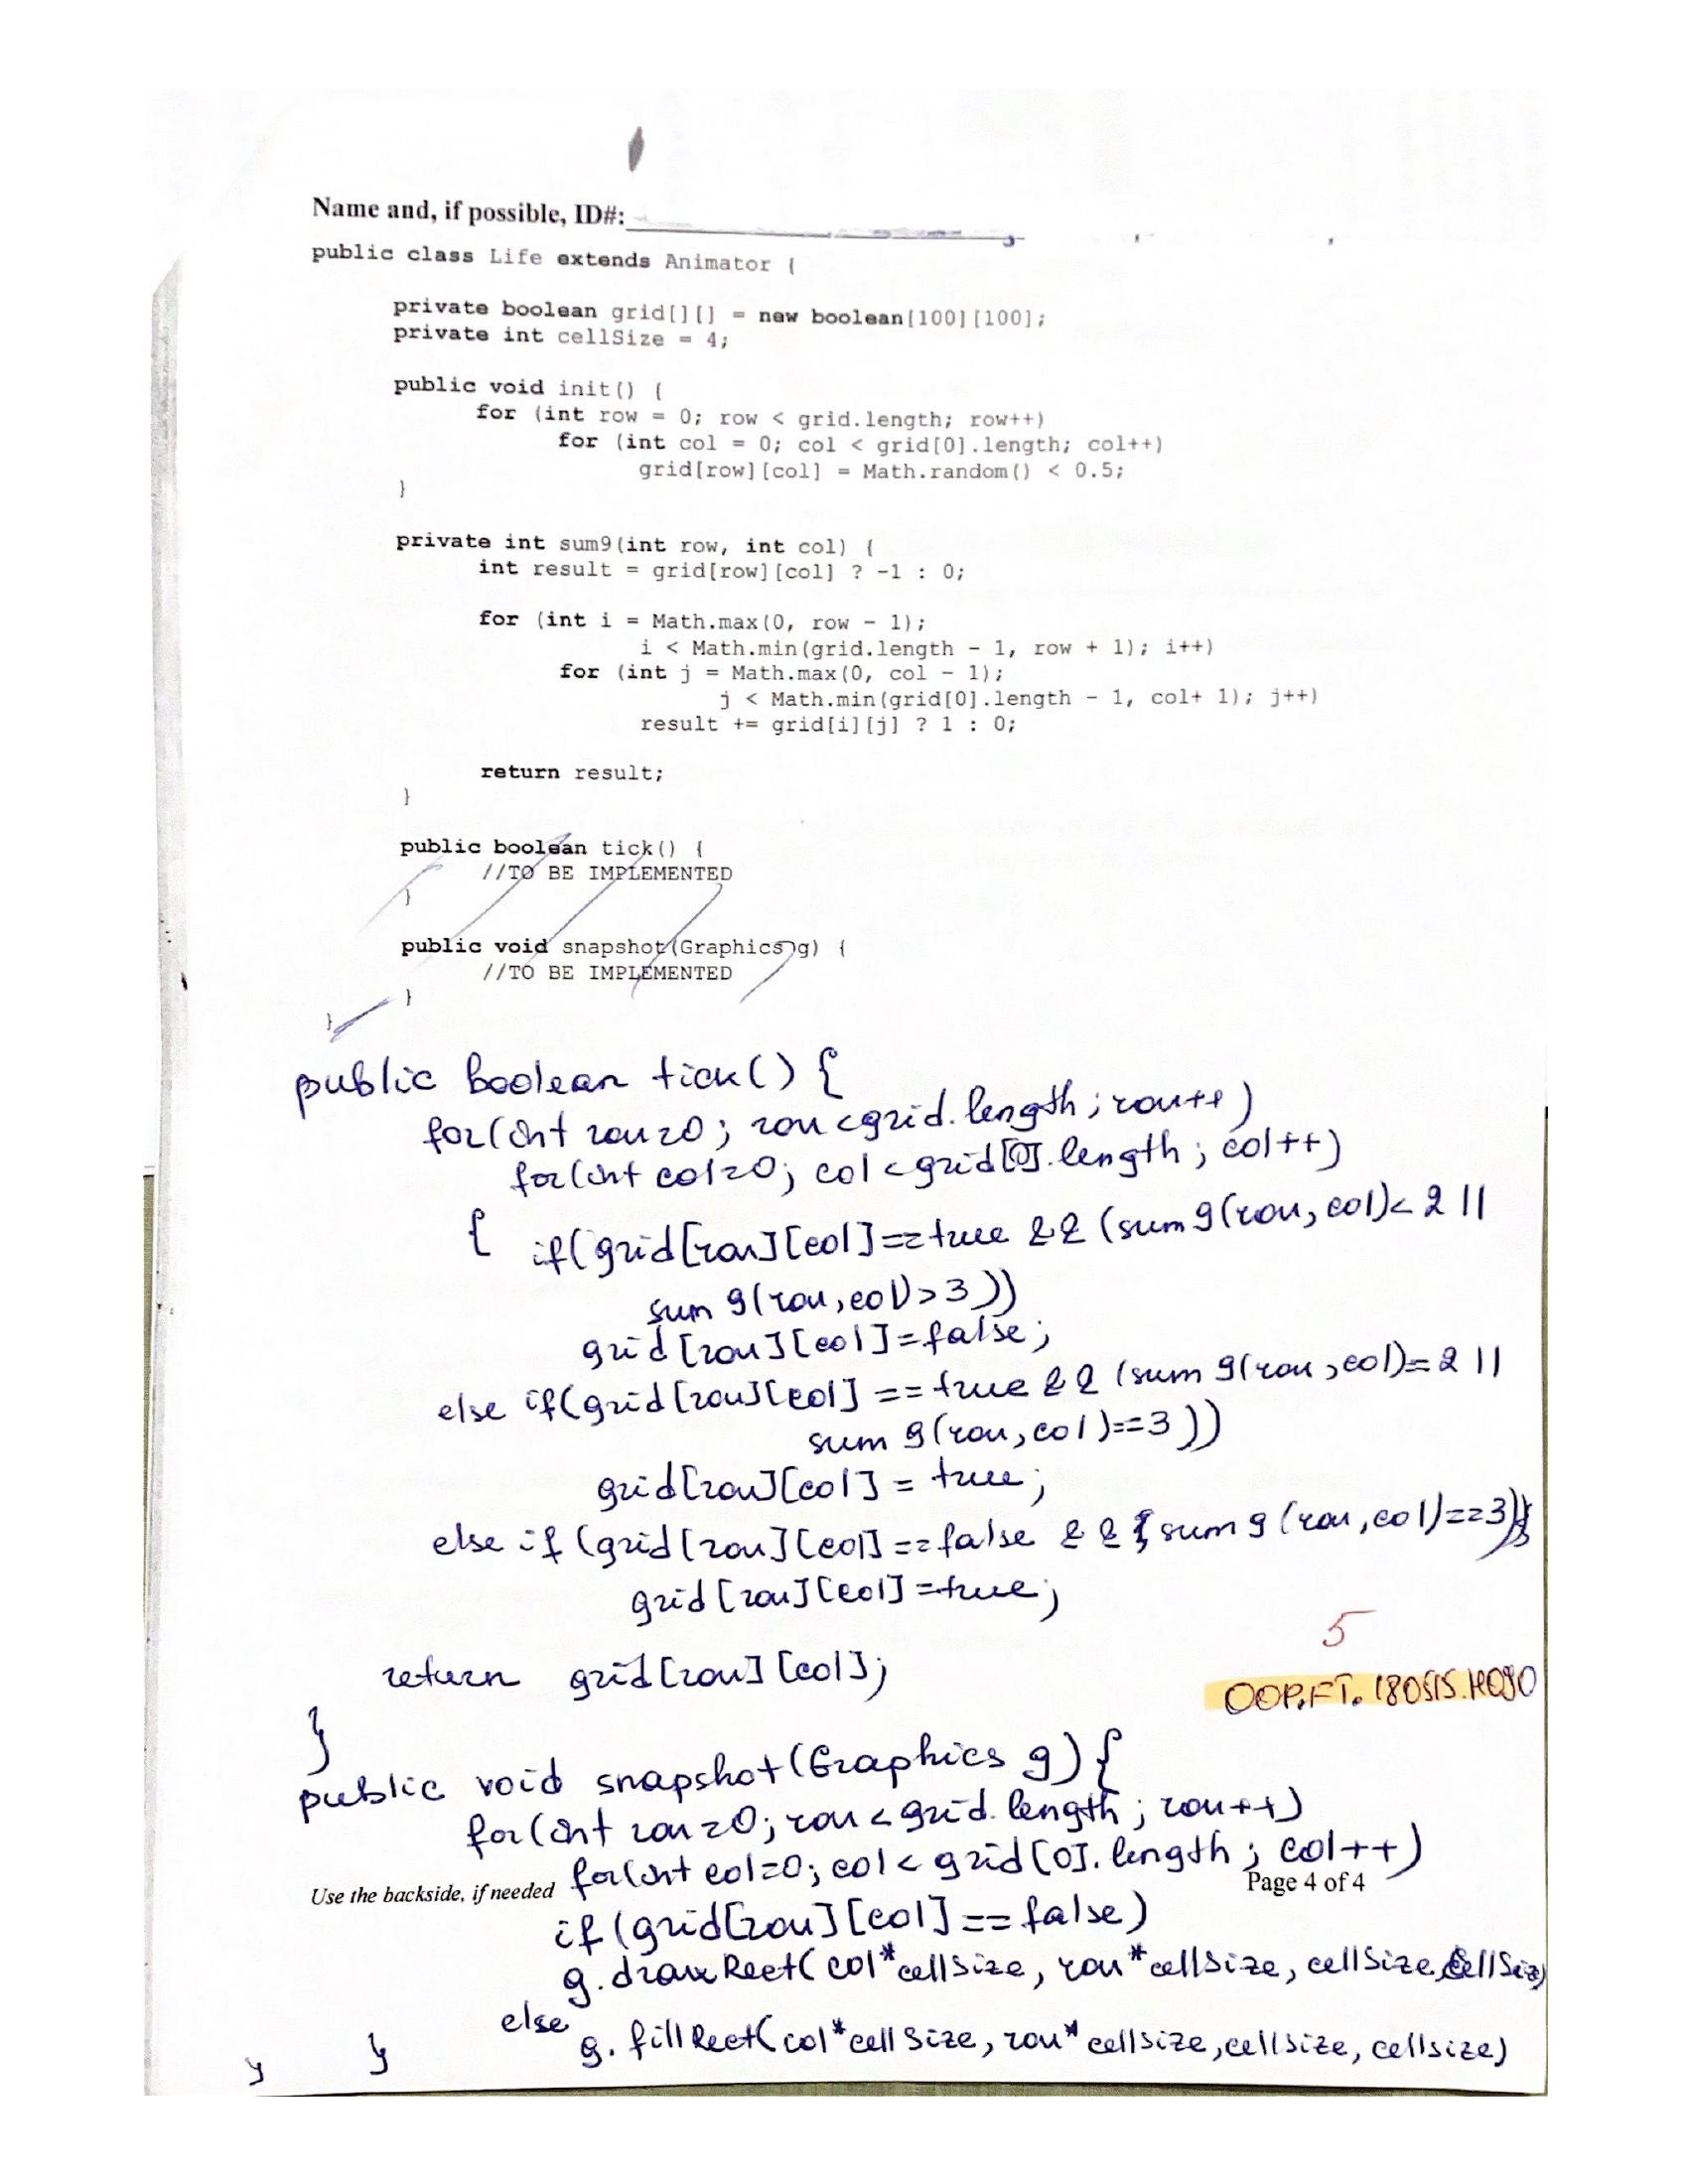 Name and, if possible, ID#:
public class Life extends Animator {
private boolean grid[][] = new boolean[100][100];
private int cellSize = 4;
public void init() {
for (int row = 0; row < grid.length; row++)
for (int col = 0; col < grid[0].length; col++)
grid[row][col] = Math.random() < 0.5;
}
private int sum9(int row, int col) {
int result = grid[row][col] ? -1 : 0;
for (int i = Math.max(0, row - 1);
i < Math.min(grid.length - 1, row + 1); i++)
for (int j = Math.max(0, col - 1);
j < Math.min(grid[0].length - 1, col+ 1); j++)
result += grid[i][j] ? 1 : 0;
return result;
}
public boolean tick() {
//TO BE IMPLEMENTED
}
public void snapshot(Graphics g) {
//TO BE IMPLEMENTED
}
}
public boolean tick() {
for(int row=0; row<grid.length; row++)
for(int col=0; col<grid[0].length; col++)
{ if(grid[row][col]==true && (sum9(row,col)<2 ||
sum9(row,col)>3))
grid[row][col]=false;
else if(grid[row][col]==true && (sum9(row,col)==2 ||
sum9(row,col)==3))
grid[row][col] = true;
else if(grid[row][col]==false && {sum9(row,col)==3)}
grid[row][col]=true;
5
return grid[row][col];
OOP.FT.180515.H090
}
public void snapshot(Graphics g) {
for(int row=0; row<grid.length; row++)
for(int col=0; col<grid[0].length; col++)
Use the backside, if needed
Page 4 of 4
if(grid[row][col]==false)
g.drawRect(col*cellSize, row*cellSize, cellSize, cellSize)
else
g.fillRect(col*cellSize, row*cellsize, cellsize, cellsize)
} }